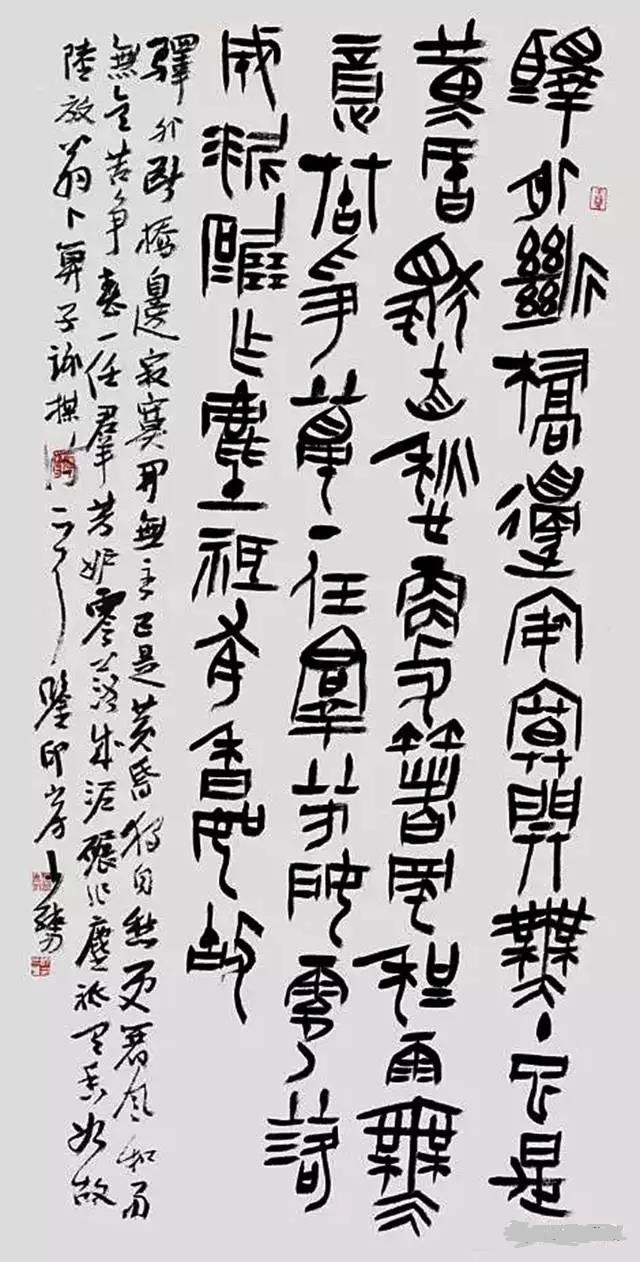 驛外斷橋邊寂寞開無主已是
黃昏獨自愁更著風和雨無
意苦爭春一任羣芳妒零落
成泥碾作塵祗有香如故
驛外斷橋邊寂寞開無主已是黃昏獨自愁更著風和雨
無意苦爭春一任羣芳妒零落成泥碾作塵祗有香如故
陸放翁卜算子詠楳 鑒印山房